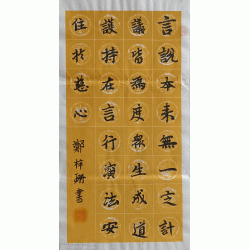 言說本來無一計
議皆為度眾生成道
護持在言行演法安
住於慈心
鄭梓珊書